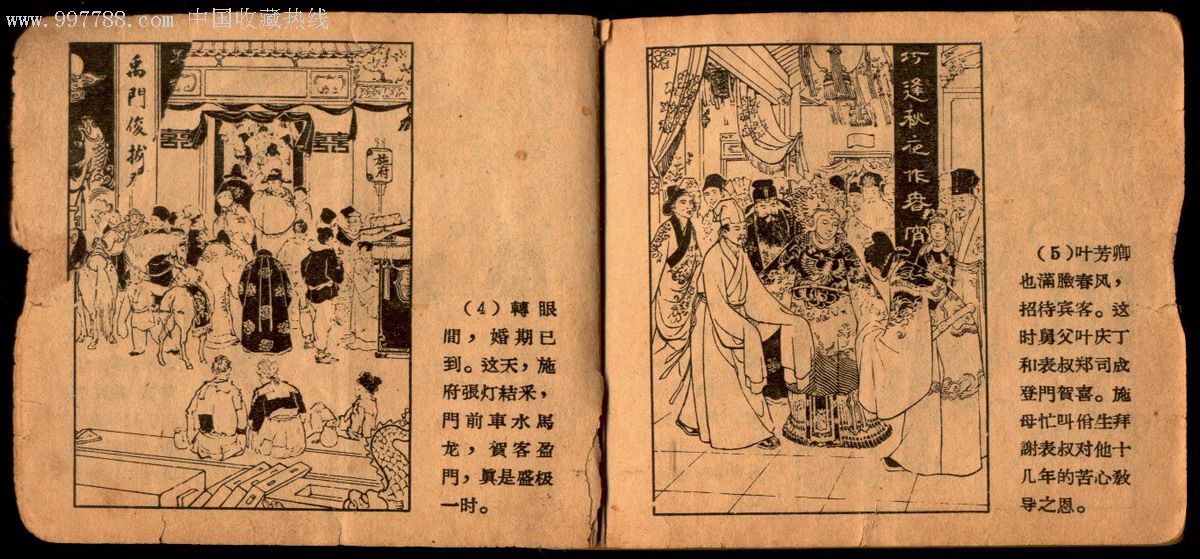 www.997788.com 中国收藏热线
禹門俊
囍
囍
施府
(4) 轉眼
間，婚期已
到。这天，施
府張灯結釆，
門前車水馬
龙，賀客盈
門，眞是盛极
一时。
逢秋夜作春宵
(5) 叶芳卿
也滿臉春风，
招待宾客。这
时舅父叶庆丁
和表叔郑司成
登門賀喜。施
母忙叫俏生拜
謝表叔对他十
几年的苦心敎
导之恩。